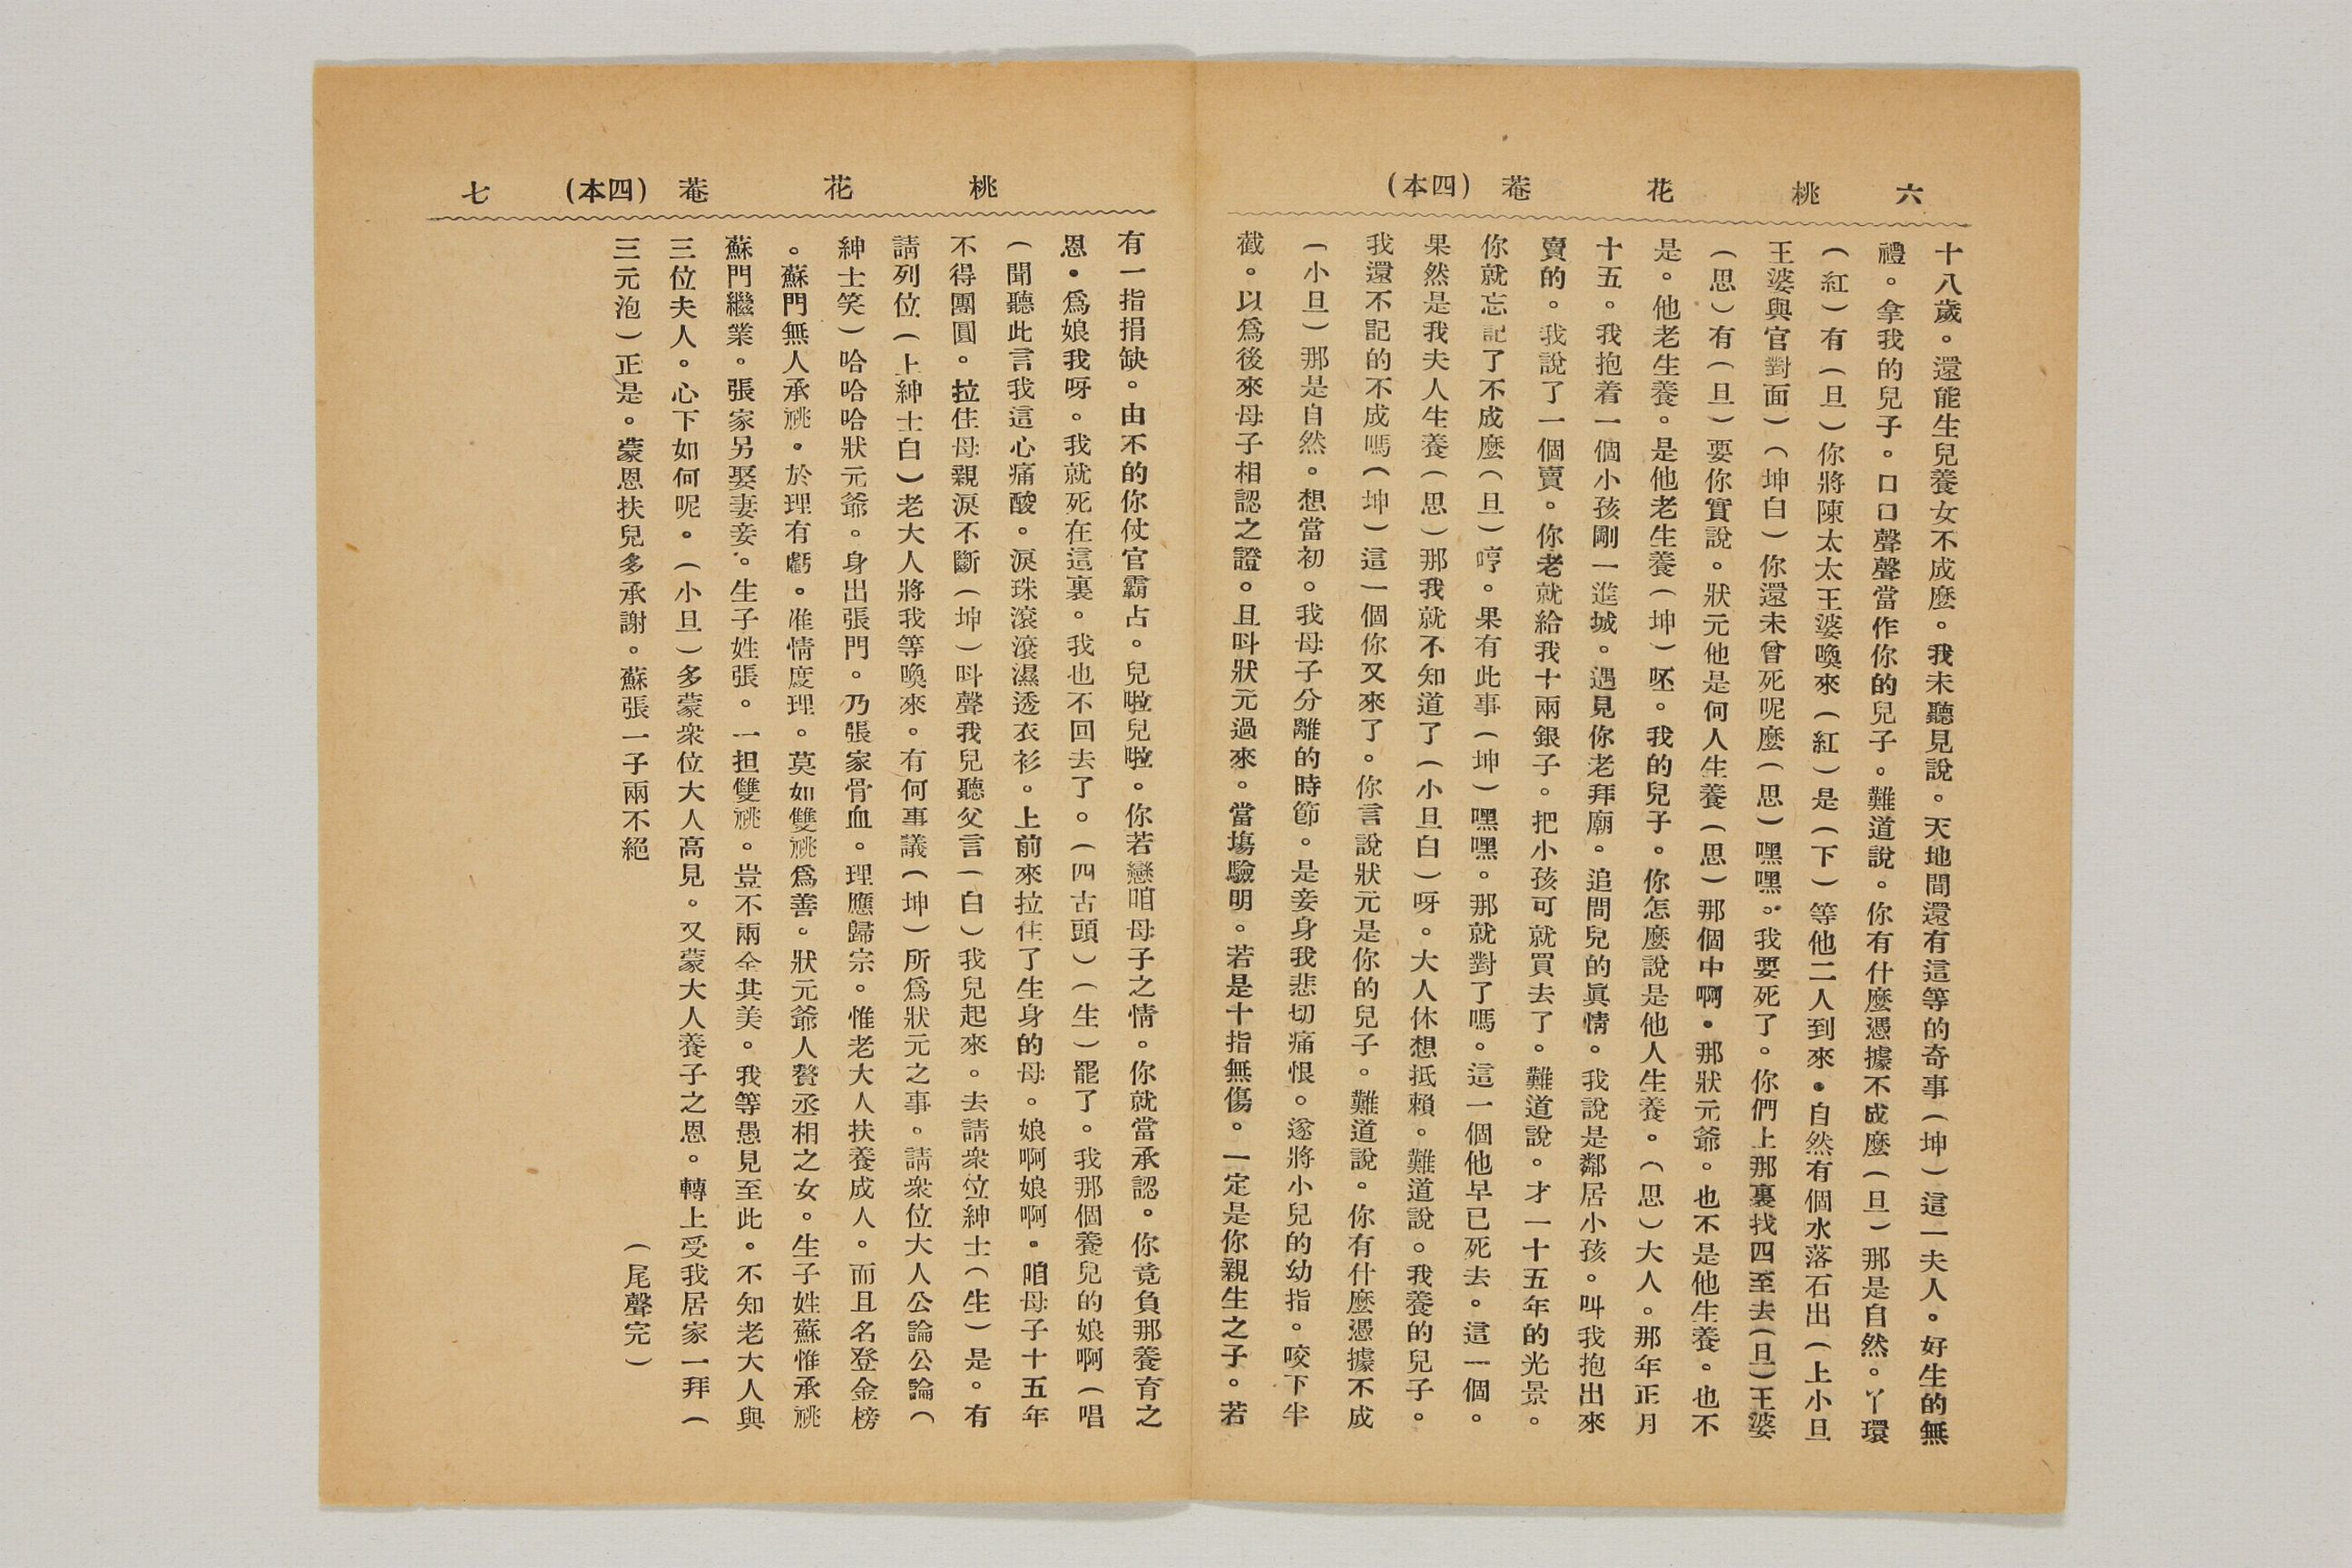 六　桃花菴（四本）
十八歲。還能生兒養女不成麼。我未聽見說。天地間還有這等的奇事（坤）這一夫人。好生的無
禮。拿我的兒子。口口聲聲當作你的兒子。難道說。你有什麼憑據不成麼（旦）那是自然。丫環
（紅）有（旦）你將陳太太王婆喚來（紅）是（下）等他二人到來。自然有個水落石出（上小旦
王婆與官對面）（坤白）你還未曾死呢麼（思）嘿嘿。我要死了。你們上那裏找四至去（旦）王婆
（思）有（旦）要你實說。狀元他是何人生養（思）那個中啊。那狀元爺。也不是他生養。也不
是。他老生養。是他老生養（坤）呸。我的兒子。你怎麼說是他人生養。（思）大人。那年正月
十五。我抱着一個小孩剛一進城。遇見你老拜廟。追問兒的眞情。我說是鄰居小孩。叫我抱出來
賣的。我說了一個賣。你老就給我十兩銀子。把小孩可就買去了。難道說。才一十五年的光景。
你就忘記了不成麼（旦）哼。果有此事（坤）嘿嘿。那就對了嗎。這一個他早已死去。這一個。
果然是我夫人生養（思）那我就不知道了（小旦白）呀。大人休想抵賴。難道說。我養的兒子。
我還不記的不成嗎（坤）這一個你又來了。你言說狀元是你的兒子。難道說。你有什麼憑據不成
（小旦）那是自然。想當初。我母子分離的時節。是妾身我悲切痛恨。遂將小兒的幼指。咬下半
截。以爲後來母子相認之證。且呌狀元過來。當塲驗明。若是十指無傷。一定是你親生之子。若
桃花菴（四本）　七
有一指損缺。由不的你仗官霸占。兒啦兒啦。你若戀咱母子之情。你就當承認。你竟負那養育之
恩。爲娘我呀。我就死在這裏。我也不回去了。（四古頭）（生）罷了。我那個養兒的娘啊（唱
（聞聽此言我這心痛酸。淚珠滾滾濕透衣衫。上前來拉住了生身的母。娘啊娘啊。咱母子十五年
不得團圓。拉住母親淚不斷（坤）呌聲我兒聽父言（白）我兒起來。去請衆位紳士（生）是。有
請列位（上紳士白）老大人將我等喚來。有何事議（坤）所爲狀元之事。請衆位大人公論公論（
紳士笑）哈哈哈狀元爺。身出張門。乃張家骨血。理應歸宗。惟老大人扶養成人。而且名登金榜
。蘇門無人承祧。於理有虧。准情度理。莫如雙祧爲善。狀元爺人贅丞相之女。生子姓蘇惟承祧
蘇門繼業。張家另娶妻妾。生子姓張。一担雙祧。豈不兩全其美。我等愚見至此。不知老大人與
三位夫人。心下如何呢。（小旦）多蒙衆位大人高見。又蒙大人養子之恩。轉上受我居家一拜（
三元泡）正是。蒙恩扶兒多承謝。蘇張一子兩不絕
（尾聲完）